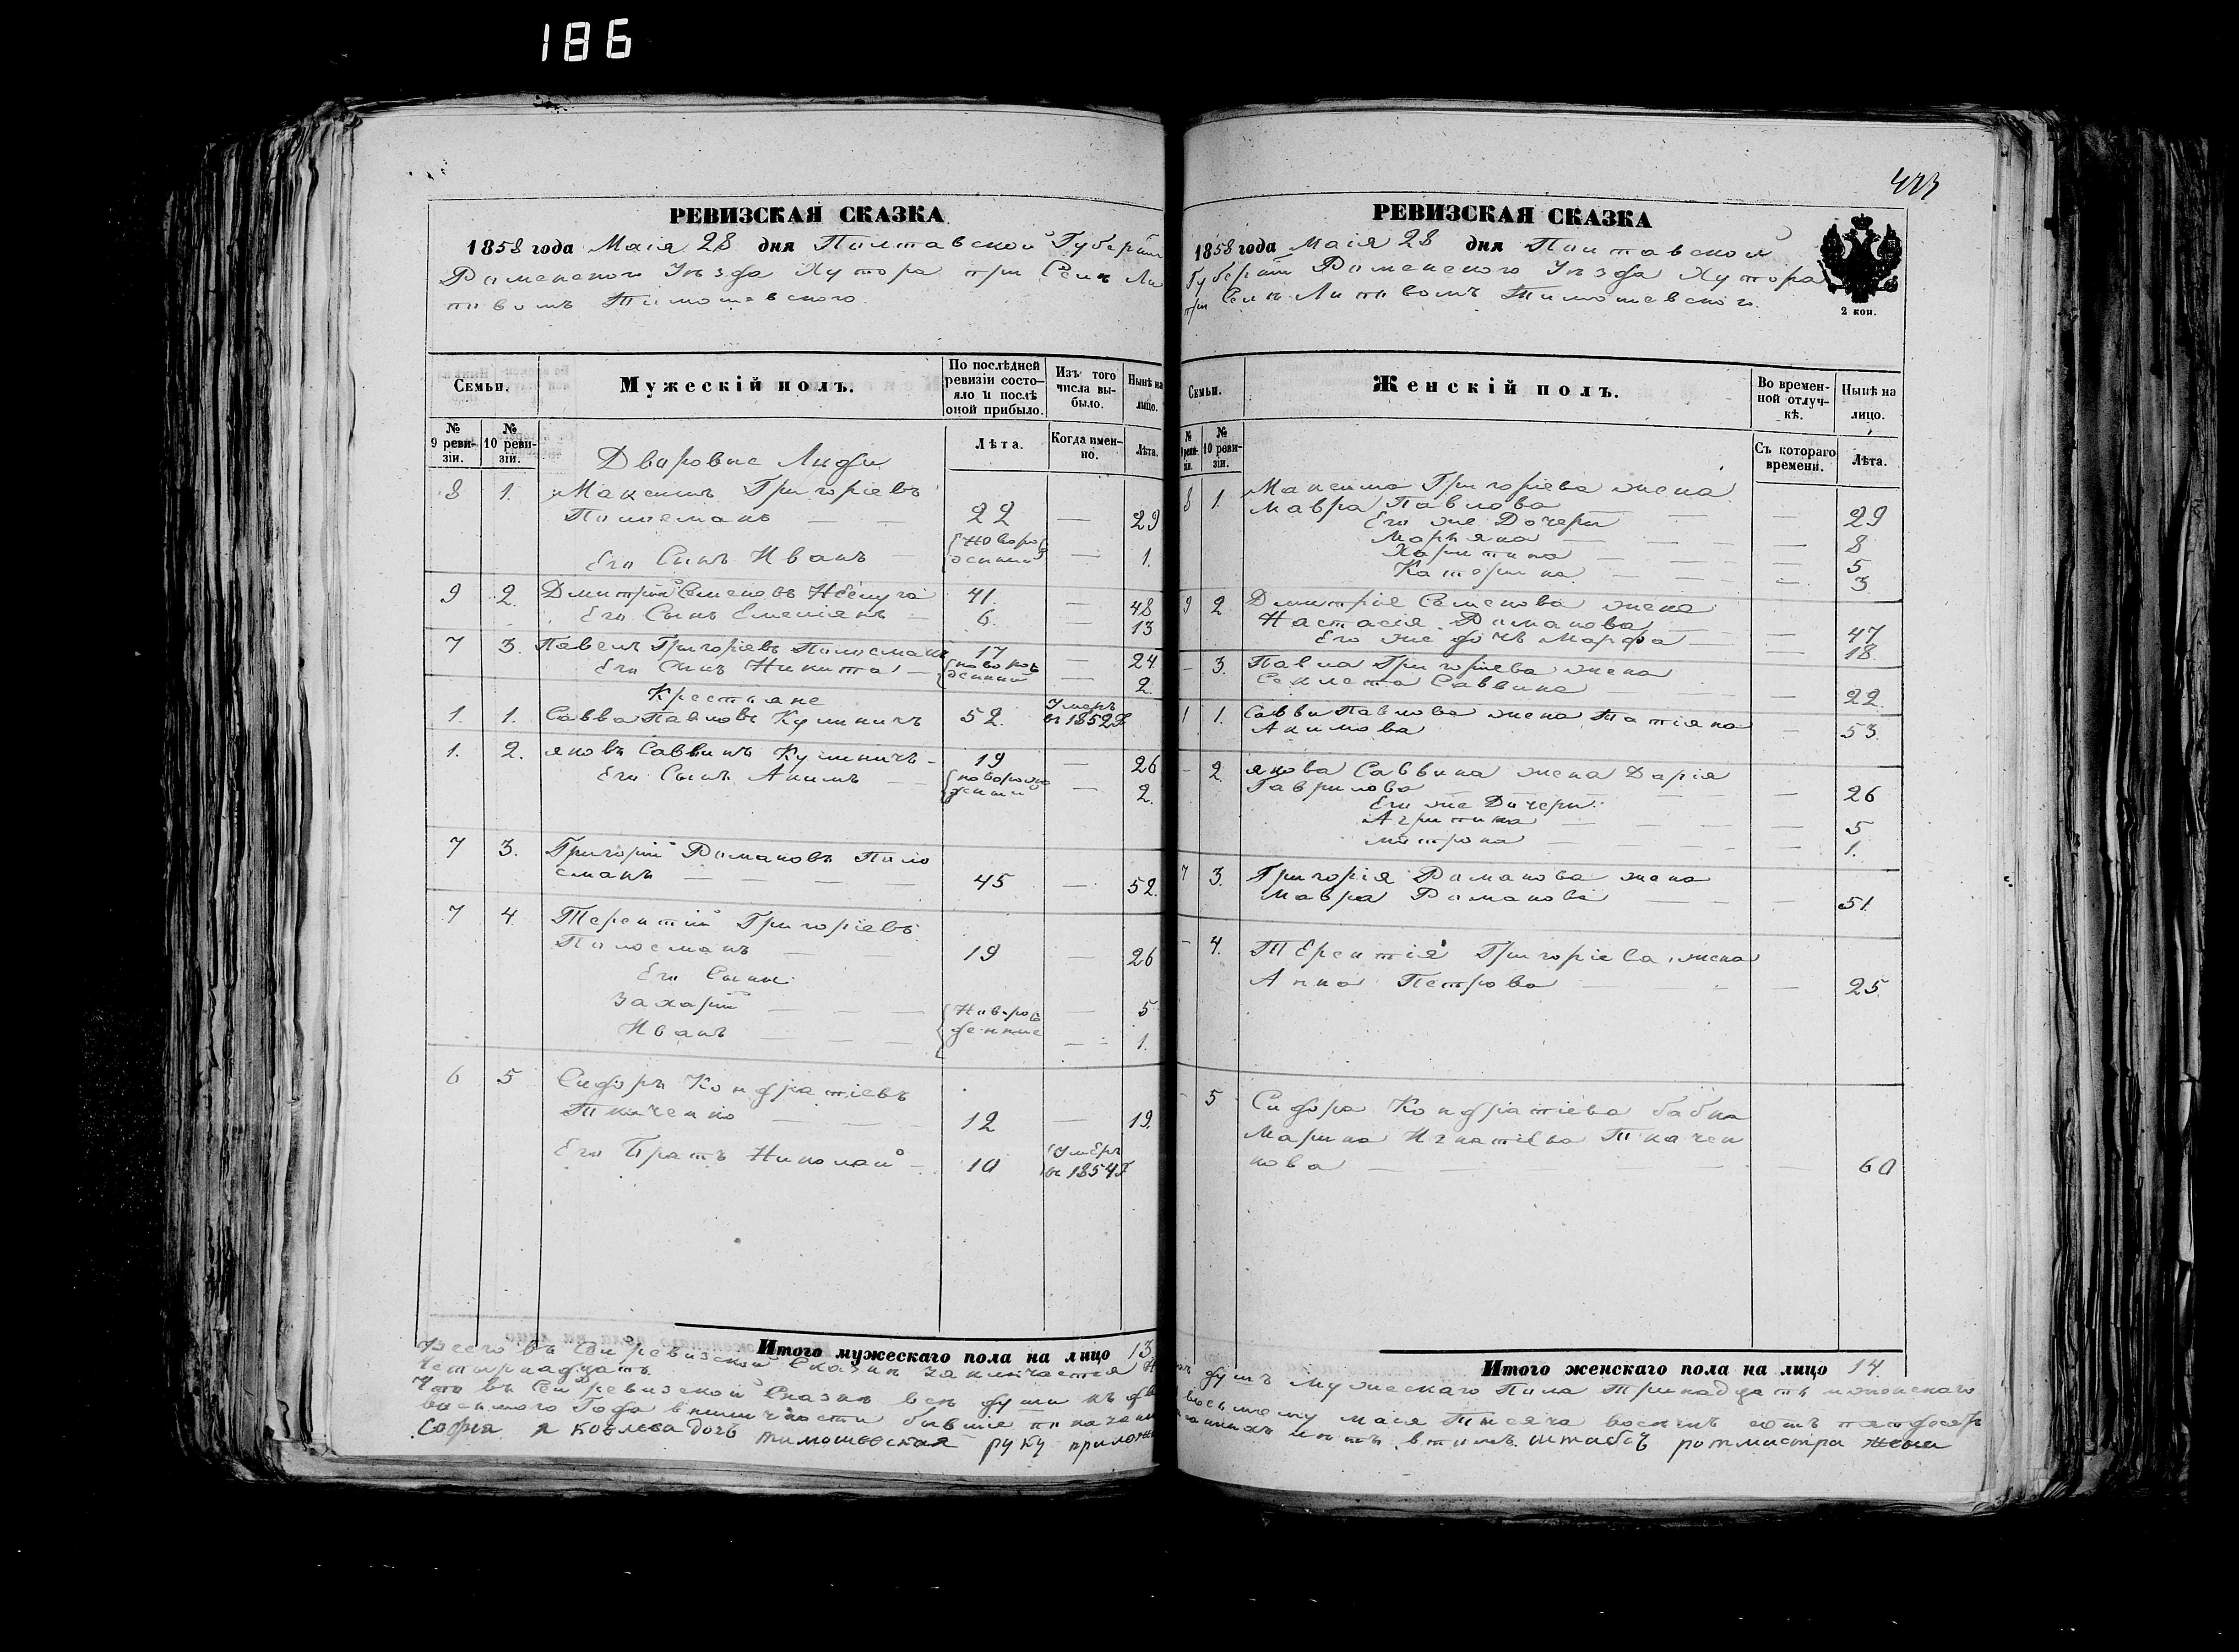 186
473
РЕВИЗСКАЯ СКАЗКА
1858 года Маія 28 дня Полтавской Губерніи
Роменского Уѣзда Хутора при Селѣ Ли
повомъ Тимошевского
Семьи.
Мужескій полъ.
По послѣдней ревизіи состо-
яло и послѣ оной прибыло.
Изъ того числа вы-
было.
Нынѣ на лицо.
№ 9 реви-
зіи.
№ 10 реви-
зіи.
Лѣта.
Когда имен-
но.
Лѣта.
Дворовые Люди
8 1. Максимъ Григоріевъ
Полосмакъ — — 22 — 29
Его Сынъ Иванъ — новорожденный — 1.
9 2. Дмитрій Семеновъ 41. — 48
Его Сынъ Емеліянъ — 6. — 13
7 3. Павелъ Григоріевъ Полосмакъ 17 — 24
Его Сынъ Никита — новорожденный — 2.
Крестьяне
1. 1. Савва Павловъ Кулиничъ 52. Умеръ въ 1852 г.
1. 2. Яковъ Саввинъ Кулиничъ — 19 — 26
Его Сынъ Акимъ — новорожденный — 2.
7 3. Григорій Романовъ Поло
смакъ — — — — 45 — 52.
7 4 Терентій Григоріевъ
Полосмакъ — — 19 — 26
Его Сыны:
Захарій — — — Новорожденные — 5
Иванъ — — — 1.
6 5 Сидоръ Кондратіевъ
Ткаченко — — — 12 — 19.
Его Братъ Николай — 10 Умеръ въ 1854 г
Итого мужескаго пола на лицо 13
РЕВИЗСКАЯ СКАЗКА
1858 года Маія 28 дня Полтавской
Губерніи Роменского Уѣзда Хутора
при Селѣ Липовомъ Тимошевского
2 коп.
Семьи.
Женскій полъ.
Во времен-
ной отлуч-
кѣ.
Нынѣ на лицо.
№ 9 реви-
зіи.
№ 10 реви-
зіи.
Съ котораго времени.
Лѣта.
8 1. Максима Григоріева жена
Мавра Павлова — — 29
Его же Дочери
Марьяна — — — — 8
Харитина — — — — 5
Катерина — — — — 3
9 2 Дмитрія Семенова жена
Настасія Романова — — 47
Его же дочь Марфа — — 18.
– 3. Павла Григоріева жена
Саввина — — 22.
1 1. Саввы Павлова жена Татіяна
Акимова — 53.
– 2 Якова Саввина жена Дарія
Гаврилова — — — — 26
Его же Дочери:
Агрипина — — — — 5
Матрона — — — — 1.
7 3. Григорія Романова жена
Мавра Романова — — — 51.
– 4. Терентія Григоріева жена
Анна Петрова — — — 25
– 5 Сидора Кондратіева бабка
Марина Игнатіева Ткачен
кова — — 60
Итого женскаго пола на лицо 14.
Всего въ сей ревизской Сказкѣ заключается душъ мужескаго пола тринадцать и женскаго
четырнадцать
Что въ сей ревизской Сказкѣ всѣ души къ восьмому маія тысяча восемь сотъ пятдесят
восьмого Года в наличности бывшіе показаны в томъ штабсъ ротмистра жена
София я Козлева дочь Тимошевская руку приложила